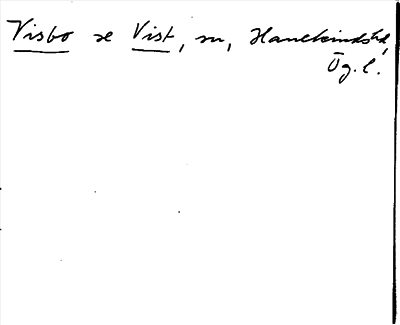 Visbo se Vist, sn, Hanekinds hd,
Ög. l.